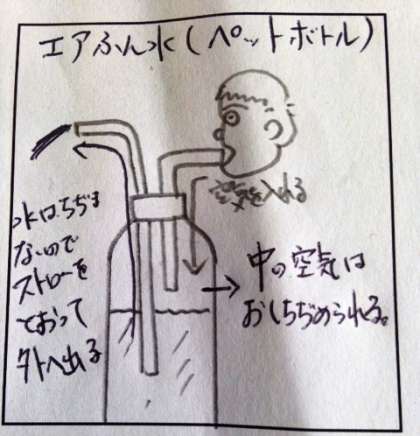 エアふん水(ペットボトル)
空気を入れる
水はちぢま
ないので
ストローを
とおって
外へ出る
中の空気は
おしちぢめられる。